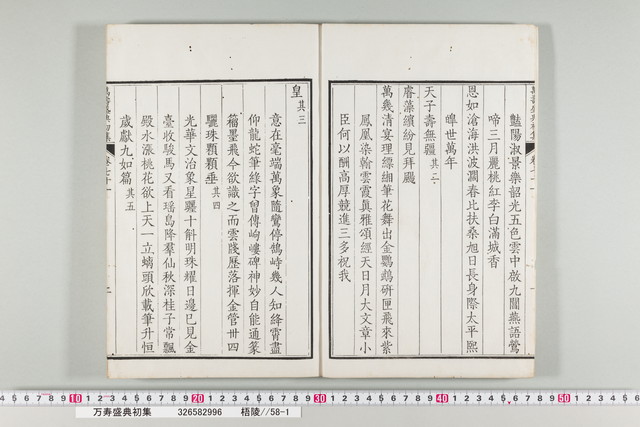 豔陽淑景樂韶光五色雲中啟九閶燕語鶯
啼三月麗桃紅李白滿城香
恩如滄海洪波濶春比扶桑旭日長身際太平熙
皥世萬年
天子壽無疆其二
睿藻繽紛見拜颺
萬幾清宴理縹緗筆花舞出金鸚鵡硏匣飛來紫
鳳凰染翰雲霞眞雅頌經天日月大文章小
臣何以酬高厚競進三多祝我
皇其三
意在毫端萬象隨鸞停鵠峙幾人知絳霄盡
仰龍蛇筆綠字曾傳峋嶁碑神妙自能通篆
籀墨飛今欲識之而雲隊歷落揮金管卅四
驪珠顆顆垂其四
光華文治象星躔十斛明珠耀日邊已見金
臺收駿馬又看瑤島降羣仙秋深桂子常飄
殿水漲桃花欲上天一立螭頭欣載筆升恒
歲獻九如篇其五
10 20 30 40 50
万寿盛典初集 326582996 梧陵//58-1